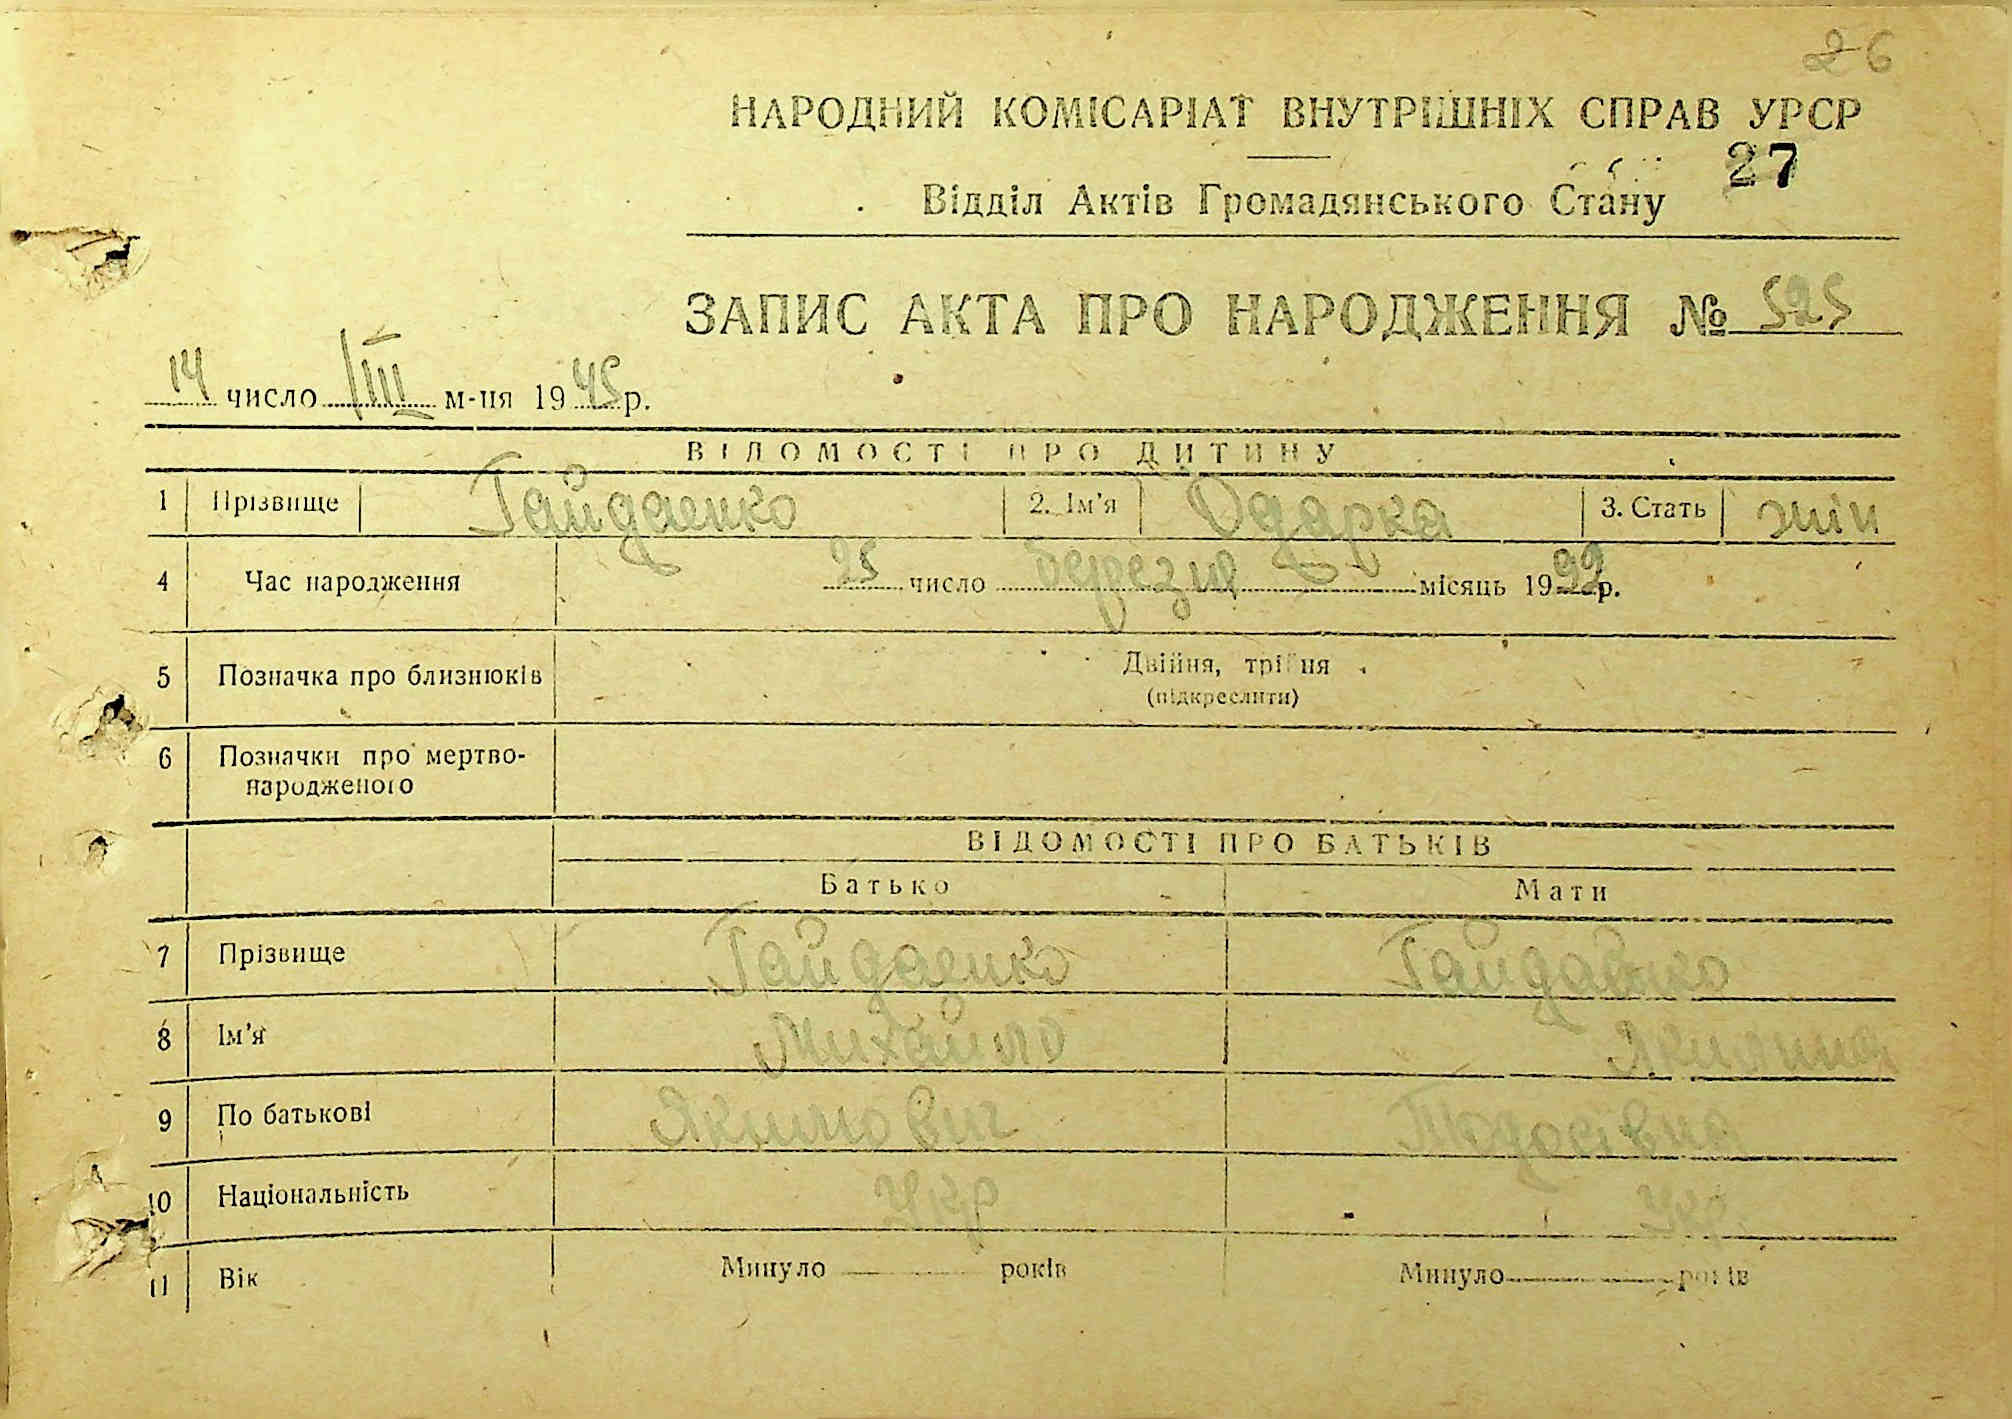 26
НАРОДНИЙ КОМІСАРІАТ ВНУТРІШНІХ СПРАВ УРСР
27
Відділ Актів Громадянського Стану
ЗАПИС АКТА ПРО НАРОДЖЕННЯ № 525
14 число III м-ця 1945 р.
ВІДОМОСТІ ПРО ДИТИНУ
1 Прізвище Гайдаенко 2. Ім'я Одарка 3. Стать жін
4 Час народження 25 число березня місяць 1922 р.
5 Позначка про близнюків Двійня, трійня
(підкреслити)
6 Позначки про мертво-
народженого
ВІДОМОСТІ ПРО БАТЬКІВ
Батько Мати
7 Прізвище Гайдаенко Гайдаенко
8 Ім'я Михайло Якилина
9 По батькові Якимович Тодосівна
10 Національність Укр Укр.
11 Вік Минуло років Минуло років